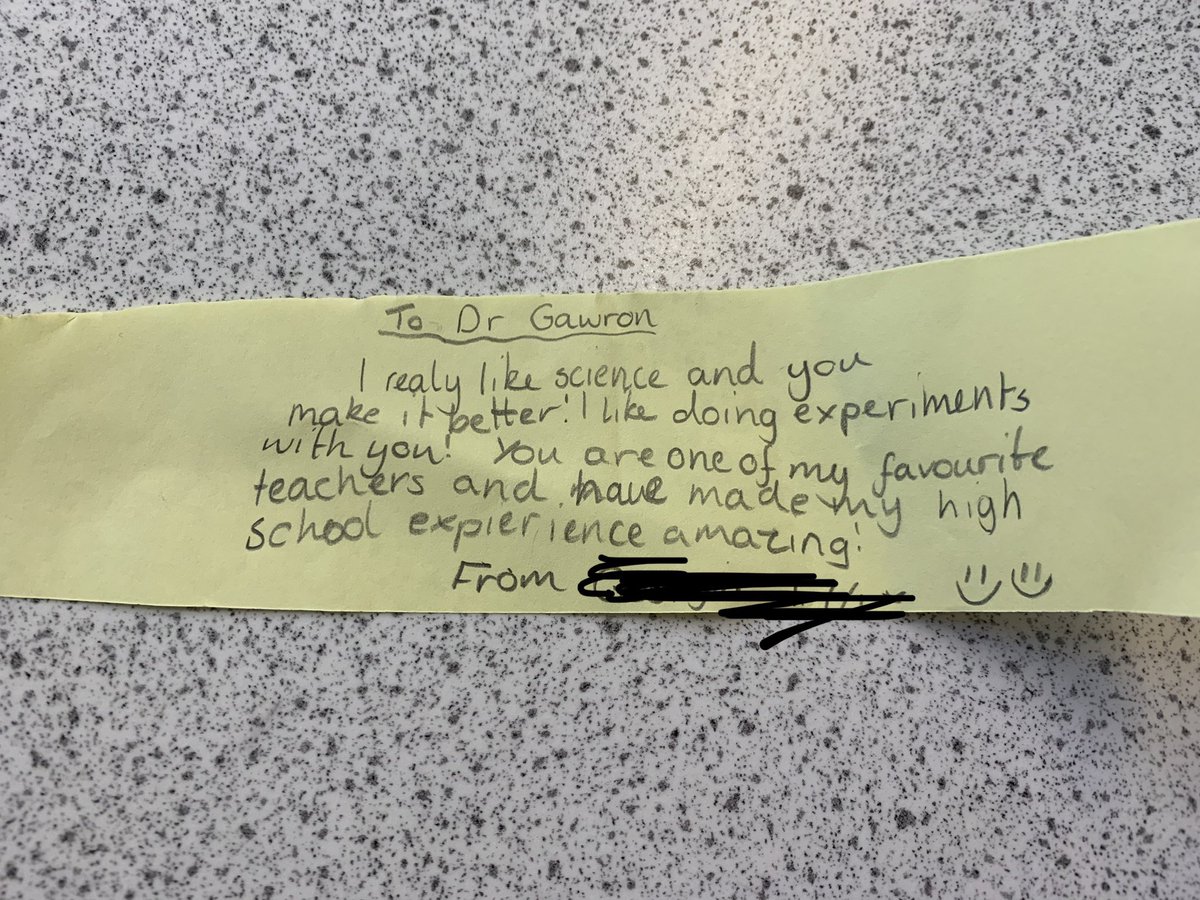 To Dr Gawron
I realy like science and you
make it better! I like doing experiments
with you! You are one of my favourite
teachers and have made my high
school expierience amazing!
From